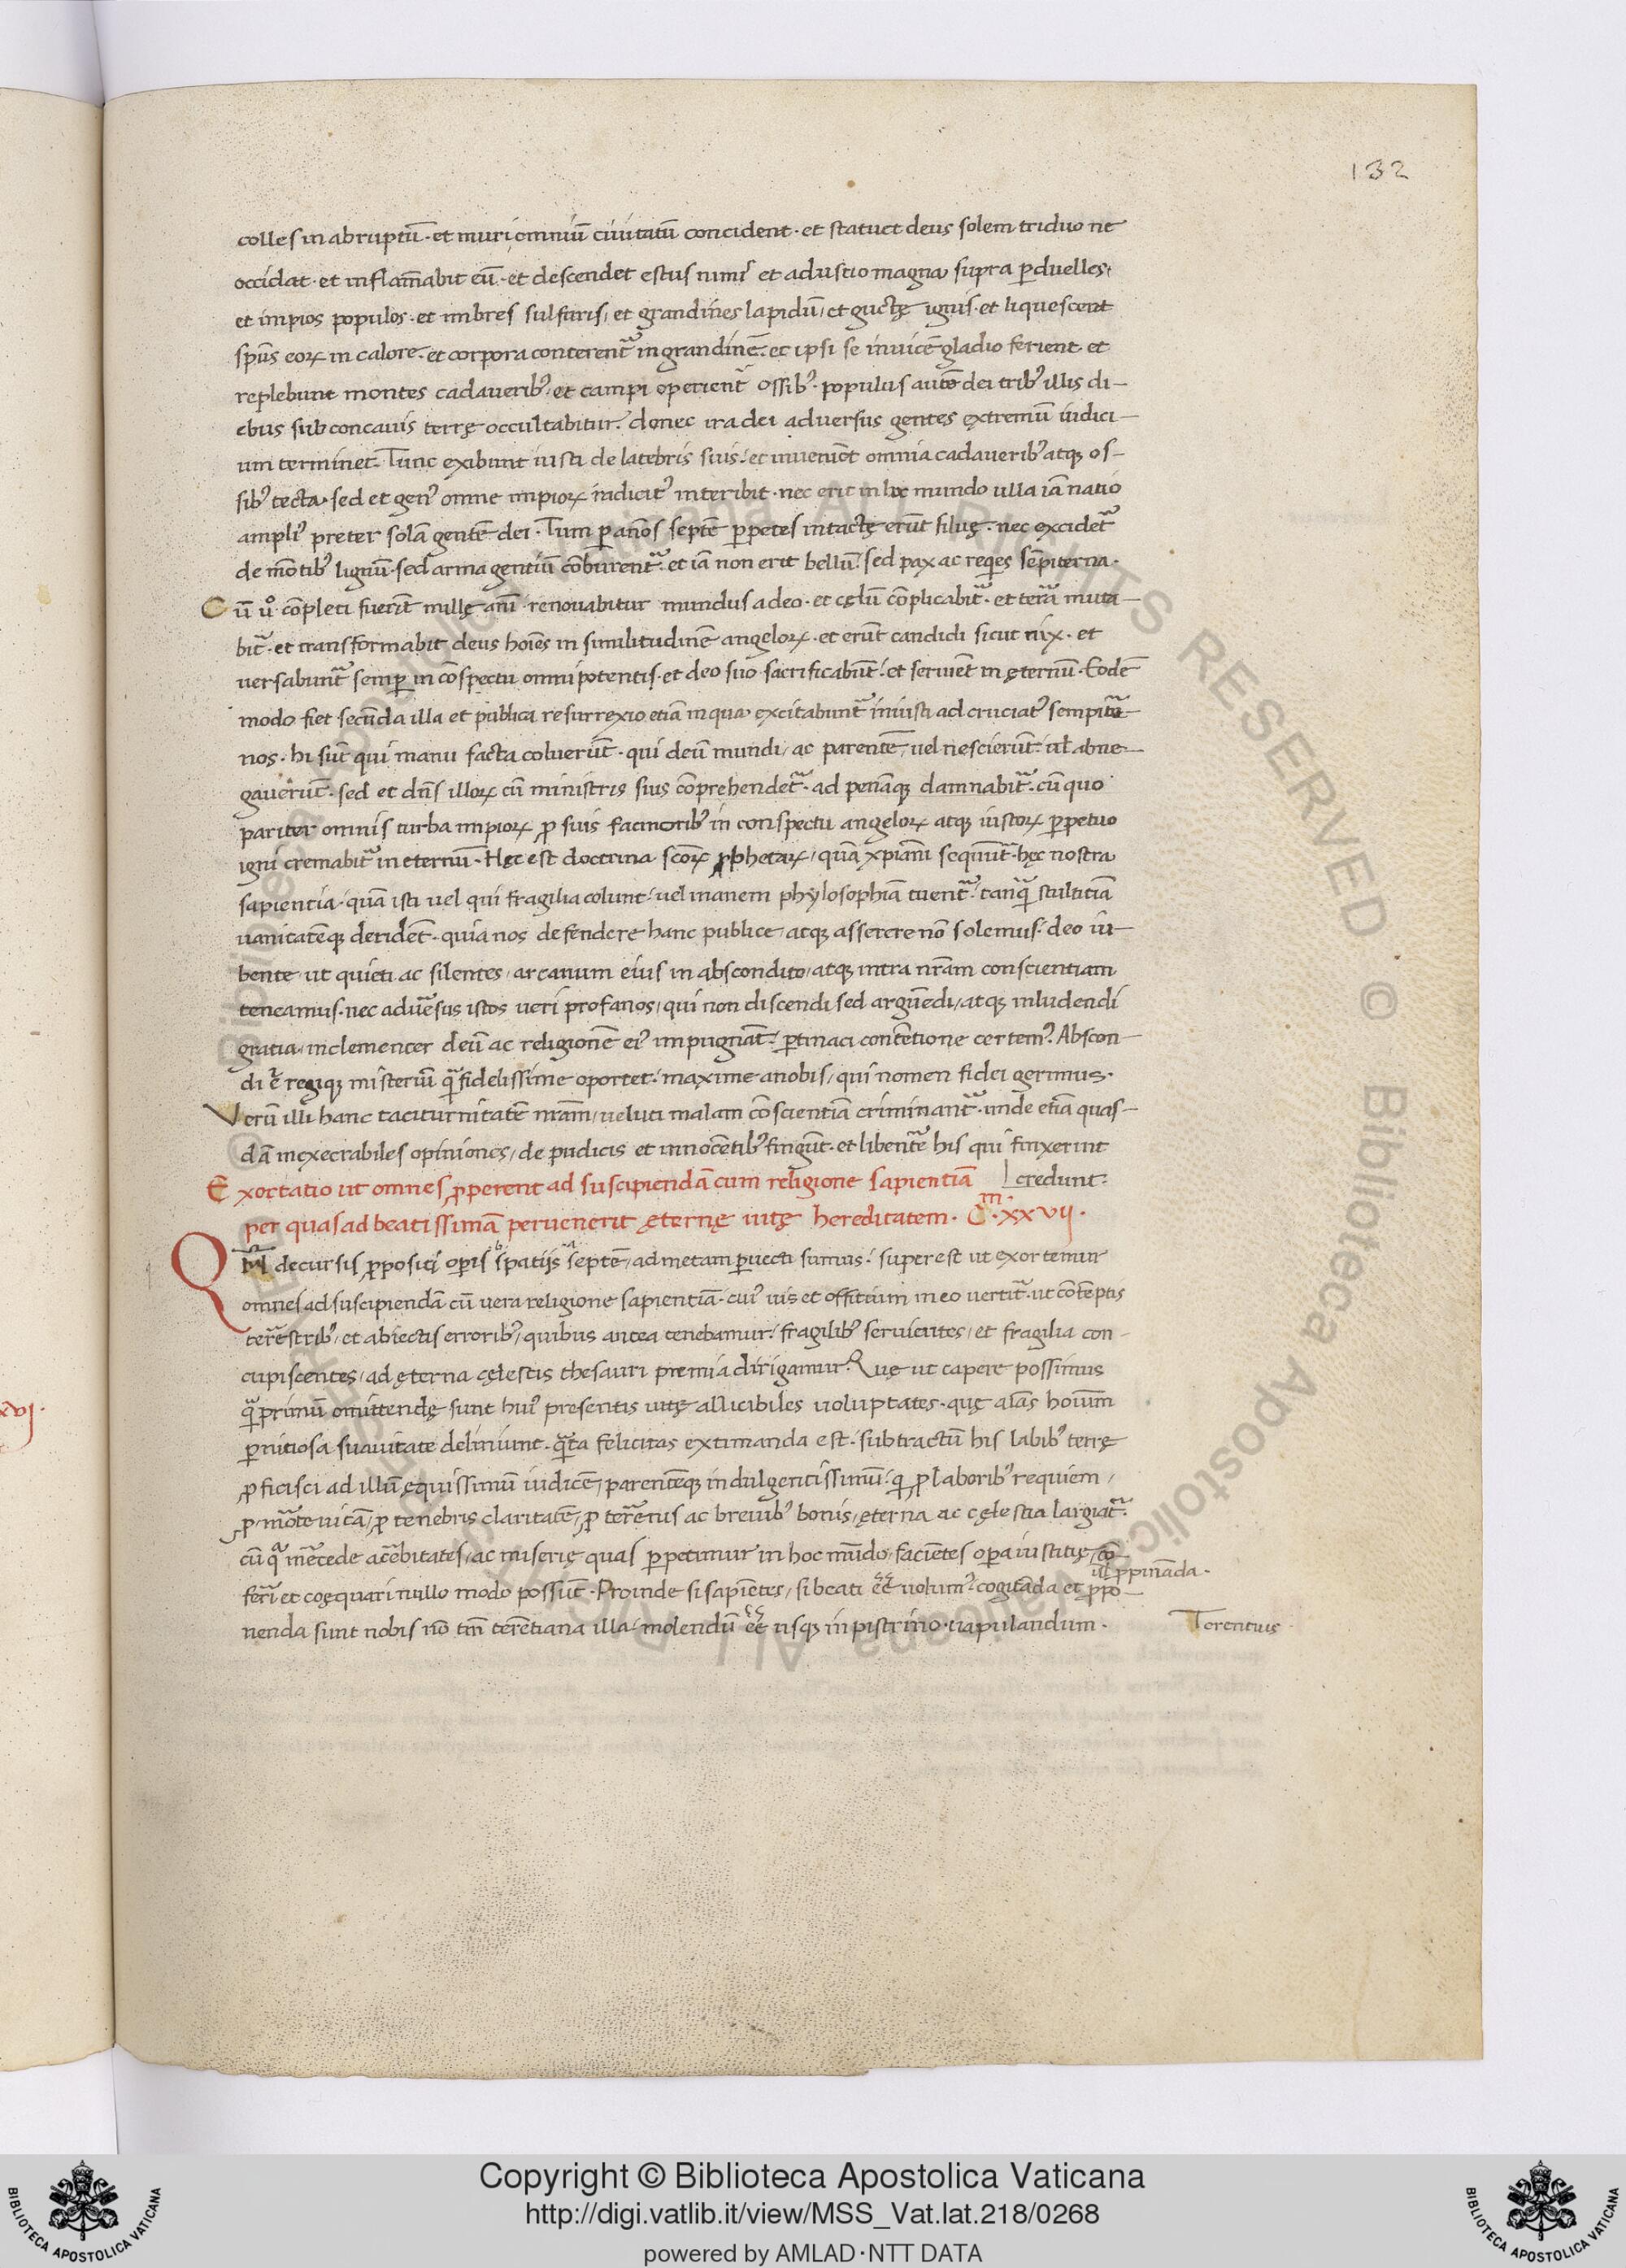 132
colles in abruptū · et muri omniū civitatū concident · et statuet deus solem triduo ne
occidat · et inflam̄abit eū · et descendet estus nimiꝰ et adustio magna supra ꝑduelles,
et impios populos · et imbres sulfuris, et grandines lapidū, et guctę ignis · et liquescent
spūs eoꝝ in calore · et corpora conterent᷑ in grandinē · et ipsi se invicē gladio ferient et
replebunt montes cadaveribꝰ, et campi operient᷑ ossibꝰ · populus autē dei tribꝰ illis di-
ebus sub concavis terrę occultabitur · donec ira dei adversus gentes extremū iudici-
um terminet. Tunc exibunt iusti de latebris suis · et inveniēt omnia cadaveribꝰ atqꝫ os-
sibꝰ tecta · sed et genꝰ omne impioꝝ radicitꝰ interibit · nec erit in hoc mundo ulla iā natio
ampliꝰ preter solā gentē dei · Tum ꝑ an̄os septē ꝑpetes intactę erūt silvę · nec excidet᷑
de mōtibꝰ lignū · sed arma gentiū cōburent᷑ · et iā non erit bellū · sed pax ac reqͥes sēpiterna ·
Cū vͦ cōpleti fuerīt mille an̄i renovabitur mundus a deo · et cęlū cōplicabit᷑ · et terā muta-
bit᷑ · et transformabit deus hoīes in similitudinē angeloꝝ · et erūt candidi sicut nix · et
versabunt᷑ semꝑ in cōspectu omnipotentis · et deo suo sacrificabūt · et servīet in ęternū · Eodē
modo fiet secūda illa et publica resurrexio etiā in qua excitabunt᷑ iniusti ad cruciatꝰ sempit᷑-
nos · hi sūt qui manu facta coluerūt · qui deū mundi, ac parentē, vel nescierūt · vl̄ abne-
gaverūt · sed et dn̄s illoꝝ cū ministris suis cōprehendet᷑ · ad penāqꝫ damnabit᷑ · cū quo
pariter omnis turba impioꝝ ꝓ suis facinoribꝰ in conspectu angeloꝝ atqꝫ iustoꝝ ꝑpetuo
igni cremabit᷑ in eternū · Hęc est doctrina sc̄oꝝ ꝓphetaꝝ, quā xp̄iani sequūt᷑ · hęc nostra
sapientia · quā isti vel qui fragilia colunt · vel inanem phylosophiā tuent᷑ · tanqͣ stultitiā
vanitatēqꝫ deridēt · quia nos defendere hanc publice, atqꝫ asserere nō solemus · deo iu-
bente, ut quieti ac silentes, arcanum eius in abscondito, atqꝫ intra nr̄am conscientiam
teneamus · nec advᷓsus istos veri profanos, qui non discendi sed arguēdi, atqꝫ inludendi
gratia, inclementer deū ac religionē eiꝰ impugnāt · ꝑtinaci contētione certemꝰ. Abscon-
di ē tegiqꝫ misteriū qͣ fidelissime oportet · maxime a nobis, qui nomen fidei gerimus ·
Verū illi hanc taciturnitatē nr̄am, veluti malam cōscientiā criminant᷑ · unde etiā quas-
dā inexecrabiles opiniones, de pudicis et innocētibꝰ fingūt · et libent᷑e his qui finxerint
credunt ·
Exortatio ut omnes ꝓperent ad suscipiendā cum religione sapientiā
per quas ad beatissimā pervenerit ęternę vitę hereditatem · C · xxvij ·
m
Qm̄ decursis ꝓpositi oꝑis spatijs septē, ad metam ꝑvecti sumus · superest ut exortemur
omnes ad suscipiendā cū vera religione sapientiā · cuiꝰ vis et offitium in eo vertit᷑ · ut cōtēptis
terᷓestribꝰ, et abiectis erroribꝰ, quibus antea tenebamur, fragilibꝰ servientes, et fragilia con-
cupiscentes, ad ęterna cęlestis thesauri premia dirigamur. Quę ut capere possimus
qͣprimū omittendę sunt huiꝰ presentis vitę allicibiles voluptates · quę aīas hoium̄
ꝑnitiosa suavitate deliniunt · qͣta felicitas extimanda est · subtractū his labibꝰ terrę
ꝓficisci ad illū ęquissimū iudicē, parentēqꝫ indulgentissimū · qͥ ꝓ laboribꝰ requiem,
ꝓ mᷓote vitā, ꝓ tenebris claritatē, ꝓ terᷓenis ac brevibꝰ bonis, ęterna ac cęlestia largiat᷑ ·
cū qͣ mᷓcede acᷓbitates, ac miserię quas ꝑpetimur in hoc mūdo, faciētes oꝑa iustitię, cō-
ferᷓi et coęquari nullo modo possūt · Proinde si sapiētes, si beati eē̄ volumꝰ · cogitāda et ꝓpo-
vl̄ ꝓpināda ·
nenda sunt nobis nō tm̄ terētiana illa · molendū eē̄ usqꝫ in pistrino · vapulandum ·
Terentius
xxvj ·
Copyright © Biblioteca Apostolica Vaticana
http://digi.vatlib.it/view/MSS_Vat.lat.218/0268
powered by AMLAD·NTT DATA
BIBLIOTECA APOSTOLICA VATICANA
BIBLIOTECA APOSTOLICA VATICANA